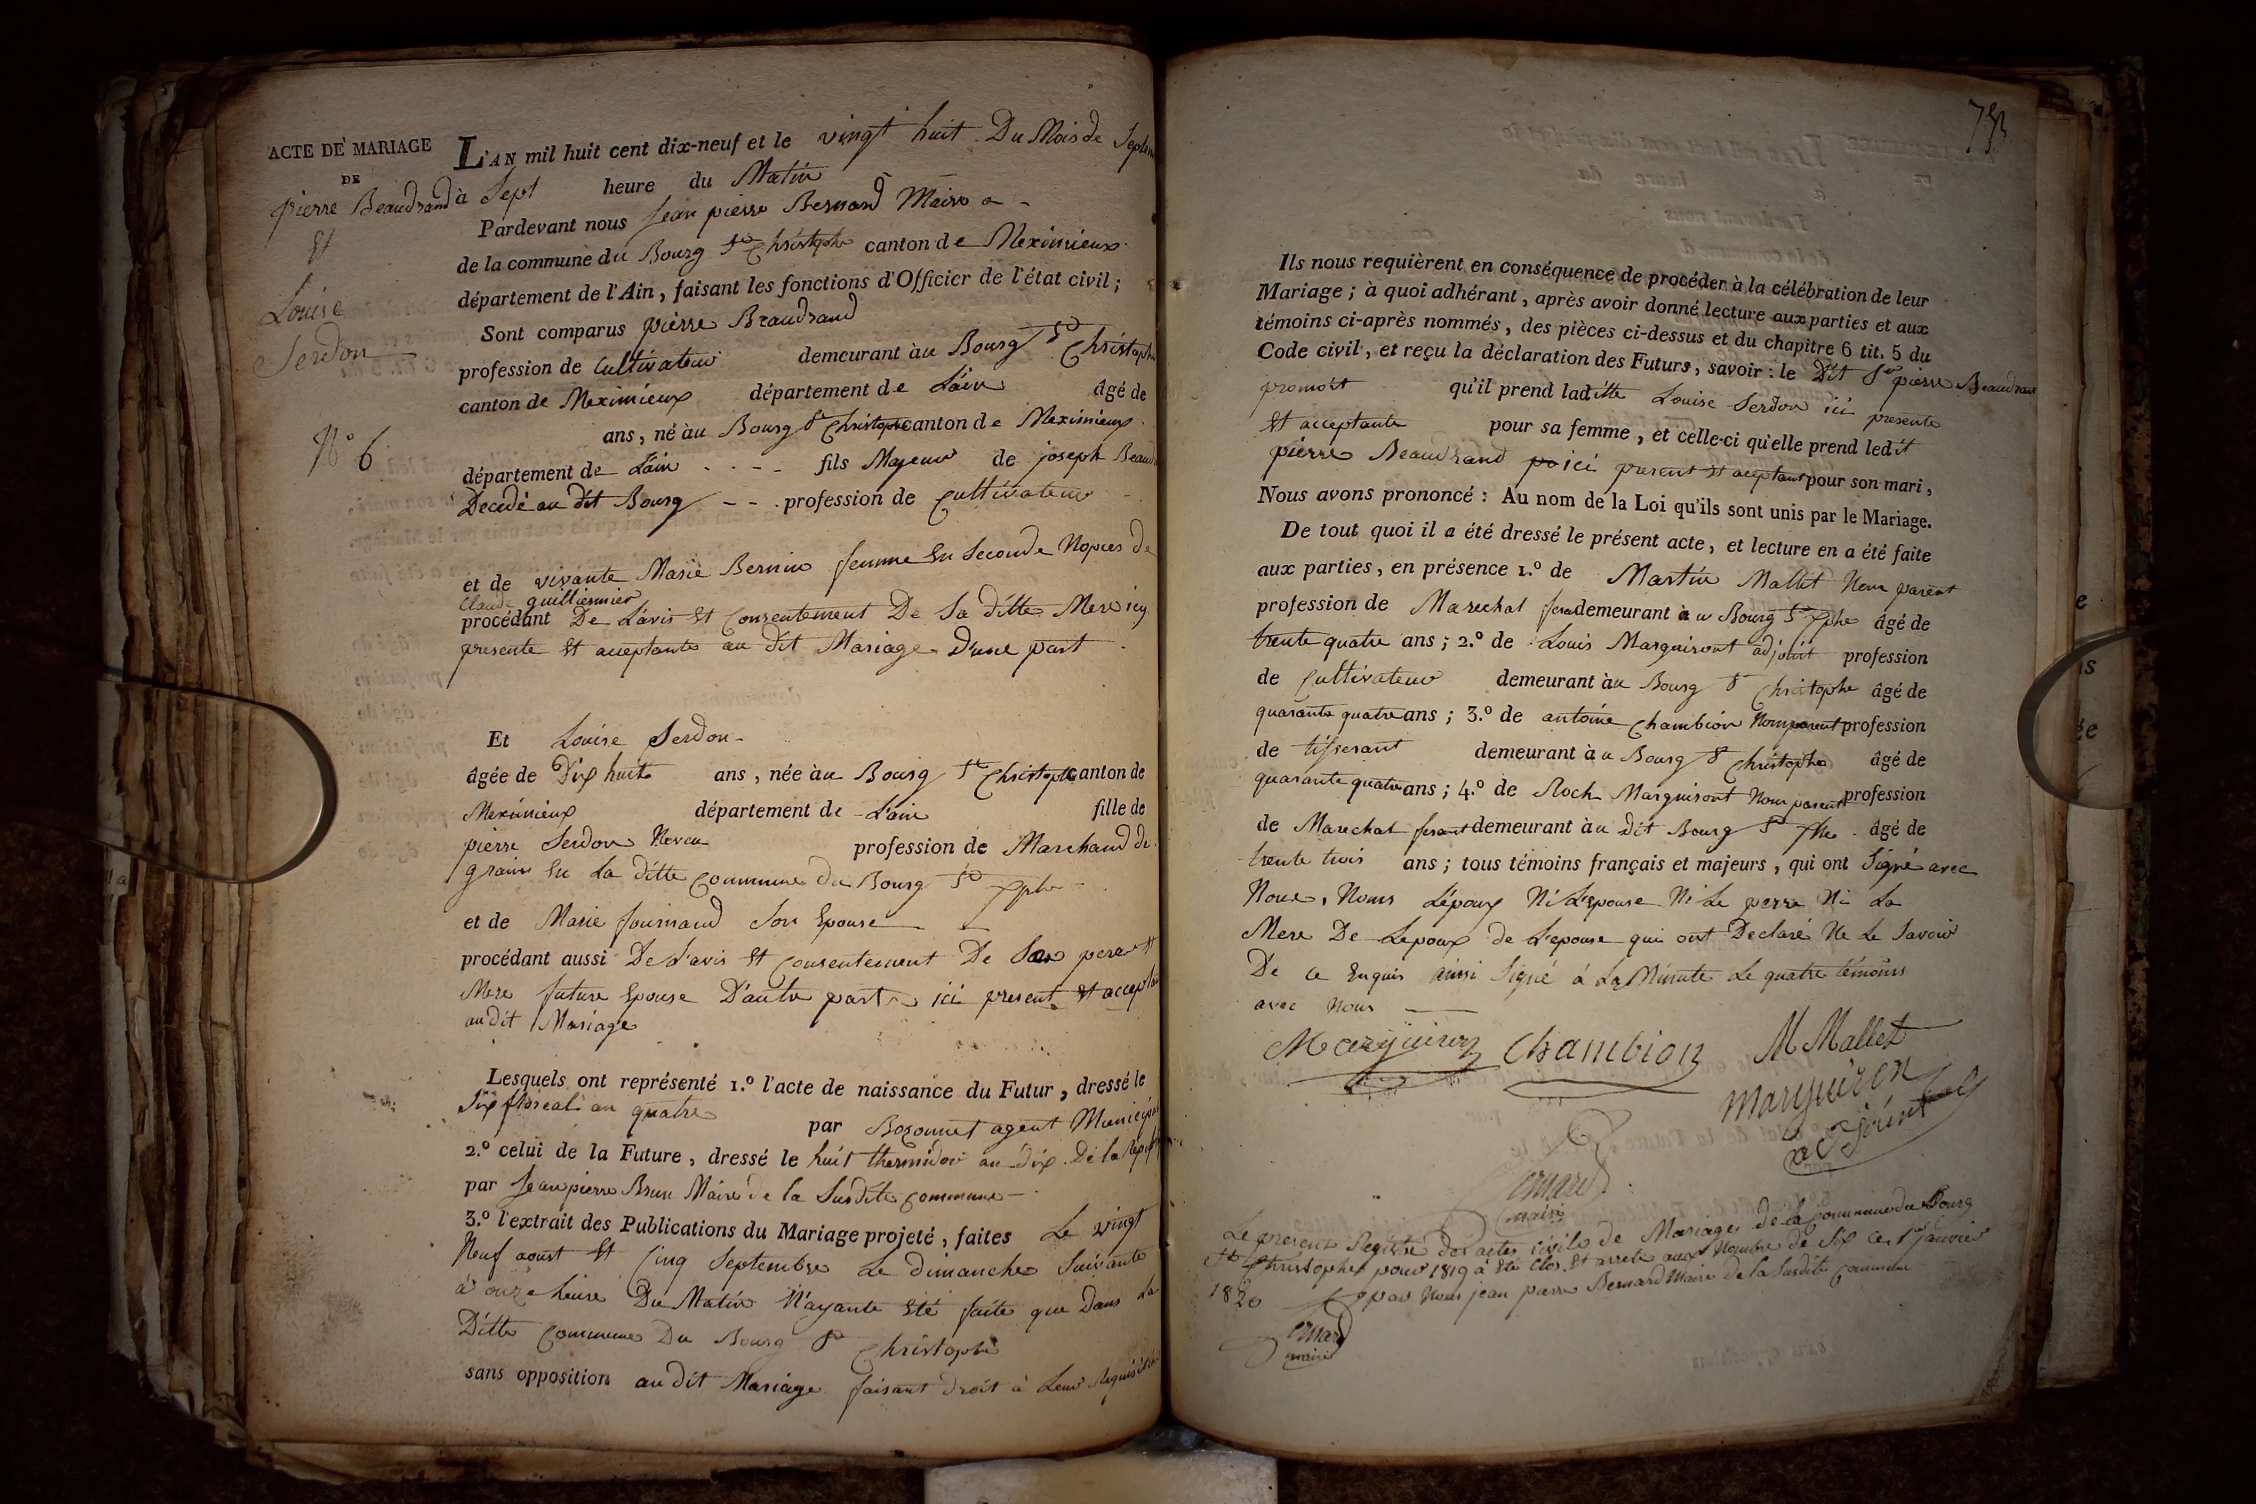 ACTE DE MARIAGE
DE
pierre Beaudrand
Et
Louise
Serdon
N° 6
L'AN mil huit cent dix-neuf et le vingt huit Du Mois de Septem
à Sept heure du Matin
Pardevant nous Jean pierre Bernard Maire
de la commune du Bourg St Christophe canton de Meximieux
département de l'Ain, faisant les fonctions d'Officier de l'état civil;
Sont comparus pierre Beaudrand
profession de Cultivateur demeurant àu Bourg St Christophe
canton de Meximieux département de L'ain âgé de
ans, né àu Bourg St Christophe canton de Meximieux
département de L'ain fils Majeur de joseph Beaud
Decedé au dit Bourg profession de Cultivateur
et de vivante Marie Bernin femme En Seconde Nopces de
Claude guilliermier
procédant De L'avis Et Consentement De Sa ditte Mere icy
presente Et acceptante au dit Mariage D'une part
Et Louise Serdon
âgée de Dix huit ans, née àu Bourg St Christophe canton de
Meximieux département de L'ain fille de
pierre Serdon Neveu profession de Marchand de
grain En La ditte Commune du Bourg St Xphe
et de Marie fournand Son Epouse
procédant aussi De L'avis Et Consentement De Son pere Et
Mere future Epouse D'autre part ici present Et acceptant
au dit Mariage
Lesquels ont représenté 1.º l'acte de naissance du Futur, dressé le
Six floreal an quatre par Bozonnet agent Municip
2.º celui de la Future, dressé le huit thermidor an dix De la Rep
par Jean pierre Brun Maire de la Susdite Commune
3.º l'extrait des Publications du Mariage projeté, faites Le vingt
Neuf aoust Et Cinq Septembre Le dimanche Suivante
à onze heure Du Matin N'ayante Eté faite que Dans La
Ditte Commune Du Bourg St Christophe
sans opposition au dit Mariage faisant droit à Leur Requisition
753
Ils nous requièrent en conséquence de procéder à la célébration de leur
Mariage; à quoi adhérant, après avoir donné lecture aux parties et aux
témoins ci-après nommés, des pièces ci-dessus et du chapitre 6 tit. 5 du
Code civil, et reçu la déclaration des Futurs, savoir: le Dit Sr pierre Beaudrand
promoit qu'il prend laditte Louise Serdon ici presente
Et acceptante pour sa femme, et celle-ci qu'elle prend ledit
pierre Beaudrand ici present Et aceptant pour son mari,
Nous avons prononcé: Au nom de la Loi qu'ils sont unis par le Mariage.
De tout quoi il a été dressé le présent acte, et lecture en a été faite
aux parties, en présence 1.º de Martin Mallet Non parent
profession de Marechal ferant demeurant àu Bourg St Xphe âgé de
trente quatre ans; 2.º de Louis Marguiront adjoint profession
de Cultivateur demeurant àu Bourg St Christophe âgé de
quarante quatre ans; 3.º de antoine Chambion Non parent profession
de tisserant demeurant àu Bourg St Christophe âgé de
quarante quatre ans; 4.º de Roch Marguiront Non parent profession
de Marechal ferant demeurant àu Dit Bourg St Xphe âgé de
trente trois ans; tous témoins français et majeurs, qui ont Signé avec
Nous, Nom L'époux Ni L'epouse Ni Le perre Ni La
Mere De Lepoux de L'epouse qui ont Declaré Ne Le Savoir
De ce Enquis ainsi Signé à La Minute Le quatre témoins
avec Nous
Marguiron Chambion M Mallet
marguiron
adjoint
Bernard
maire
Le present Registre des actes civils de Mariage de la Commune du Bourg
St Christophe pour 1819 à Eté Clos Et arreté aux Nombre de Six ce 1er Janvier
1820 par Nous jean pierre Bernard Maire de la Susdite Commune
Bernard
maire